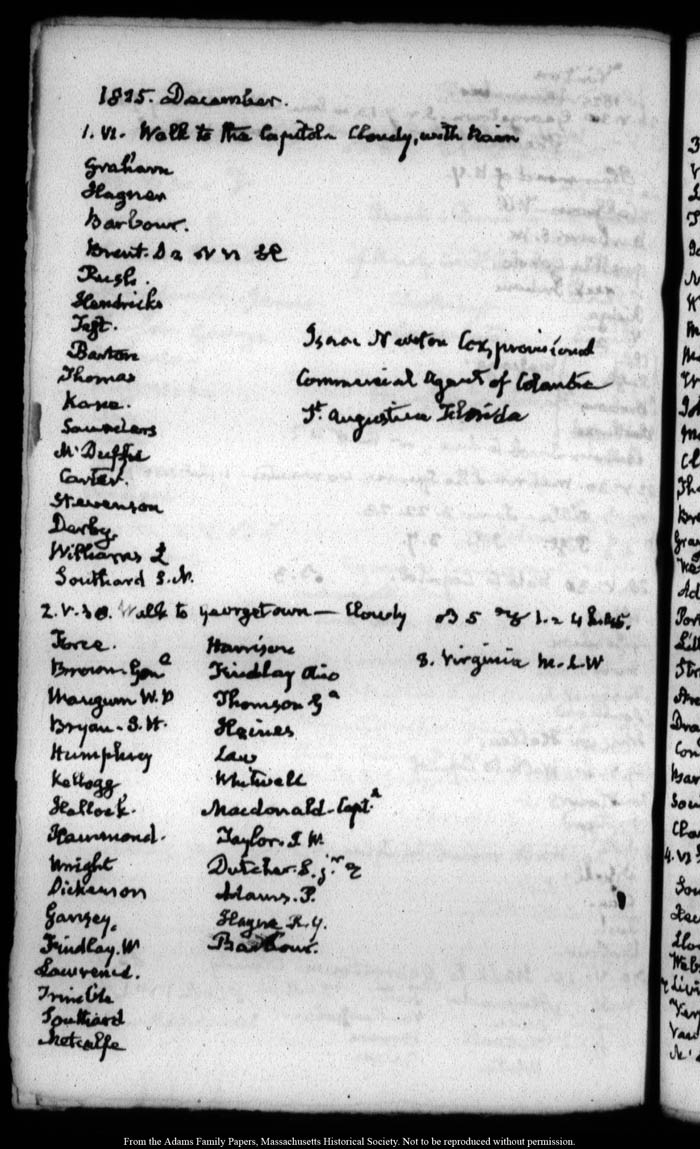 1825. December.
1. VI. Walk to the Capitol. Cloudy, with Rain
Graham
Hagner
Barbour.
Brent.
Rush.
Hendricks
Test.
Barton
Thomas
Kane.
Saunders
McDuffie
Carter.
Stevenson
Darby
Williams
Southard S. N.
Isaac Newton Cox, provisional
Commercial Agent of Colombia
St. Augustine Florida
2. V. 30. Walk to Georgetown — Cloudy
8. Virginia M. L. W
Force.
Brown Genl
Mangum W. P
Bryan. J. H.
Humphrey
Kellogg
Hallock.
Hammond.
Wright
Dickerson
Garnsey,
Findlay. W
Lawrence.
Trimble
Southard
Metcalfe
Harrison
Findlay Ohio
Thomson Ga
Haines
Law
Whitwell
Macdonald. Capt.
Taylor. J. W.
Dutcher.
Adams. P.
Hayne R. Y.
Barbour.
From the Adams Family Papers, Massachusetts Historical Society. Not to be reproduced without permission.